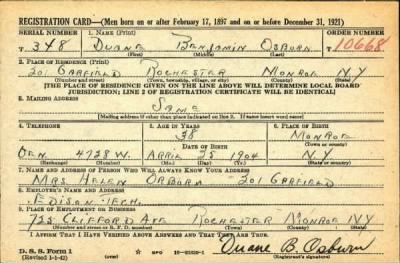 REGISTRATION CARD—(Men born on or after February 17, 1897 and on or before December 31, 1921)
SERIAL NUMBER 1. NAME (Print) ORDER NUMBER
T 348 DUANE BENJAMIN OSBURN 10668
(First) (Middle) (Last)
2. PLACE OF RESIDENCE (Print)
201 GARFIELD ROCHESTER MONROE N.Y.
(Number and street) (Town, township, village, or city) (County) (State)
[THE PLACE OF RESIDENCE GIVEN ON THE LINE ABOVE WILL DETERMINE LOCAL BOARD
JURISDICTION; LINE 2 OF REGISTRATION CERTIFICATE WILL BE IDENTICAL]
3. MAILING ADDRESS
SAME
[Mailing address if other than place indicated on line 2. If same insert word same]
4. TELEPHONE 5. AGE IN YEARS 6. PLACE OF BIRTH
38 MONROE
DATE OF BIRTH (Town or county)
GEN 4728 W. APRIL 25 1904 N.Y.
(Exchange) (Number) (Mo.) (Day) (Yr.) (State or country)
7. NAME AND ADDRESS OF PERSON WHO WILL ALWAYS KNOW YOUR ADDRESS
MRS HELEN OSBURN 201 GARFIELD
8. EMPLOYER'S NAME AND ADDRESS
EDISON TECH.
9. PLACE OF EMPLOYMENT OR BUSINESS
725 CLIFFORD AVE ROCHESTER MONROE N.Y.
(Number and street or R. F. D. number) (Town) (County) (State)
I AFFIRM THAT I HAVE VERIFIED ABOVE ANSWERS AND THAT THEY ARE TRUE.
D. S. S. Form 1
(Revised 1-1-42) (over) GPO Duane B. Osburn
(Registrant's signature)